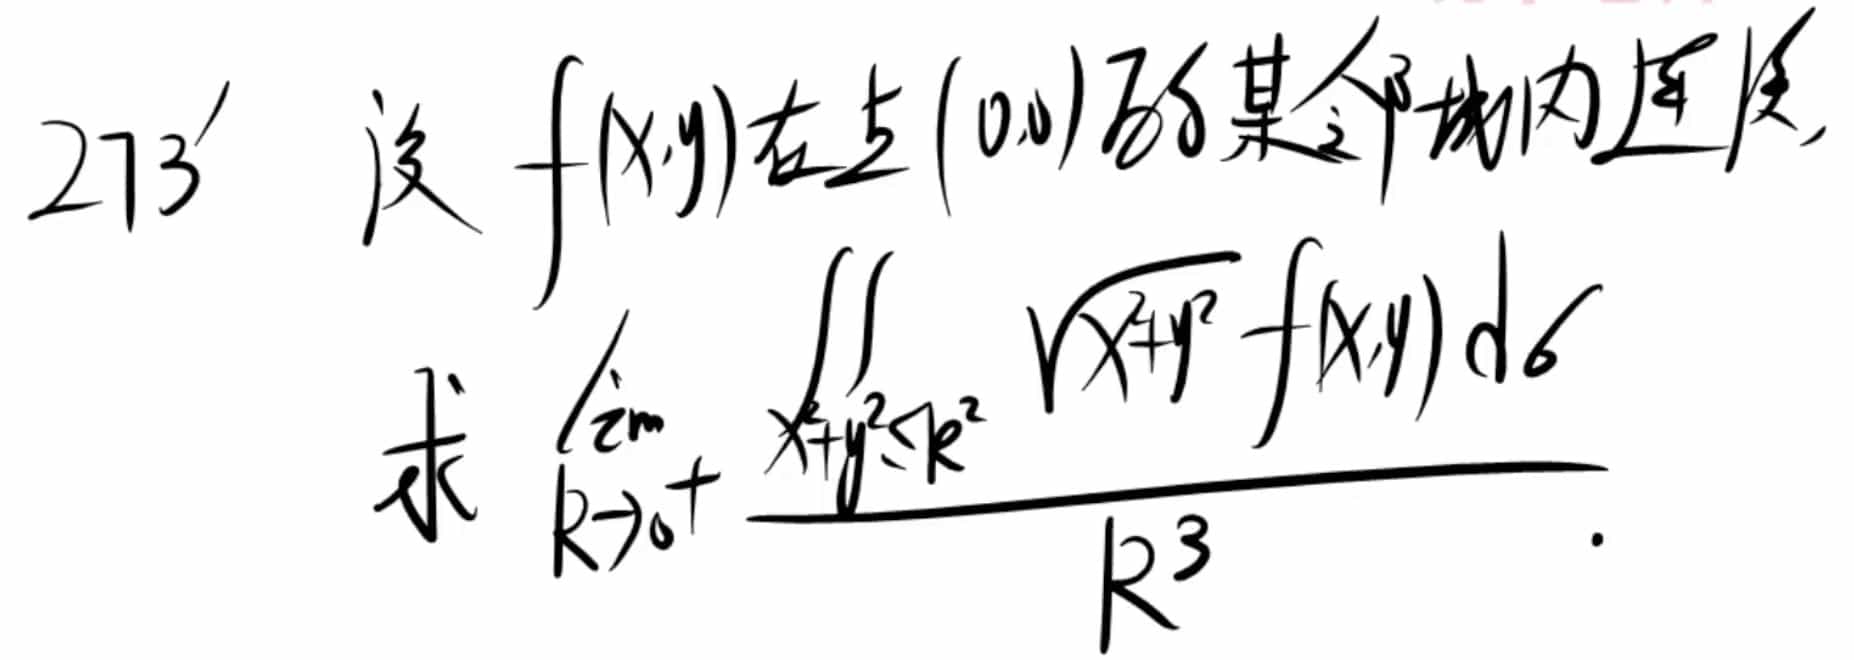 273' 设 f(x,y)在点(0,0)的某个邻域内连续,
求 lim R→0+ ∬ x²+y²≤R² √x²+y² f(x,y)dσ
R³ .